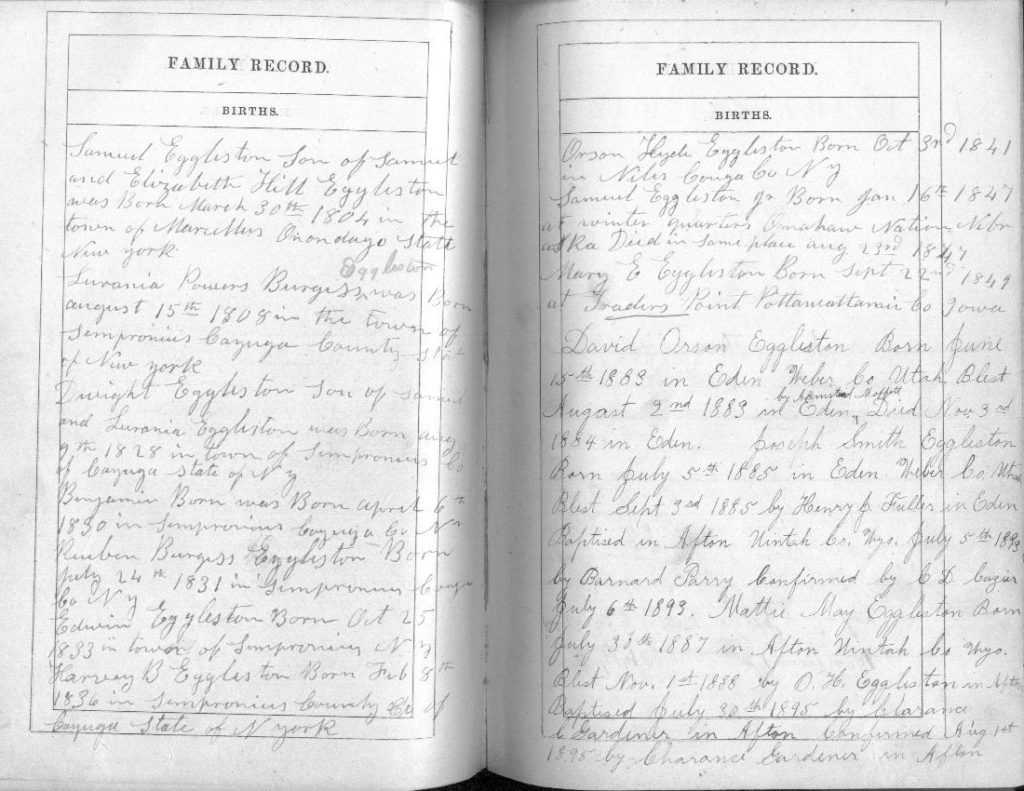 FAMILY RECORD.
BIRTHS.
Samuel Eggliston Son of Samuel
and Elizabeth Hill Eggliston
was Born March 30th 1804 in the
town of Marcellus Onondago State
New york
Eggliston
Lurania Powers Burgess was Born
august 15th 1808 in the town of
Sempronius Cayuga County stat
of New york
Dwight Eggliston Son of Samuel
and Lurania Eggliston was Born aug
9th 1828 in town of Simpronius Co
of Cayuga State of N y
Benjamin Born was Born april 6th
1830 in Simpronius Cayuga Co N y
Reuben Burgess Eggliston Born
july 24th 1831 in Simpronius Couga
Co N y
Edwin Eggliston Born Oct 25
1833 in town of Simpronius N y
Harvey B Eggliston Born Feb 8th
1836 in Simpronius County of
Cayuga State of N york
FAMILY RECORD.
BIRTHS.
Orson Hyde Eggliston Born Oct 3rd 1841
in Niles Couga Co N y
Samuel Eggliston Jr Born Jan 16th 1847
at winter quarters Omahaw Nation Nibr
aska Died in same place aug 23rd 1847
Mary E Eggliston Born Sept 22nd 1849
at Traders Point Pottawattamie Co Iowa
David Orson Eggliston Born June
15th 1883 in Eden Weber Co Utah Blest
by
August 2nd 1883 in Eden, Died Nov. 3rd
1884 in Eden. Joseph Smith Eggliston
Born July 5th 1885 in Eden Weber Co Utah
Blest Sept 3rd 1885 by Henry J. Fuller in Eden
Baptised in Afton Uintah Co. Wyo. July 5th 1893
by Barnard Parry Confirmed by C D. Cazier
July 6th 1893. Mattie May Eggliston Born
July 30th 1887 in Afton Uintah Co Wyo.
Blest Nov. 1st 1888 by O. H. Eggliston in Afton
Baptised July 30th 1895 by Clarance
Gardener in Afton Confirmed Aug 1st
1895 by Charance Gardener in Afton